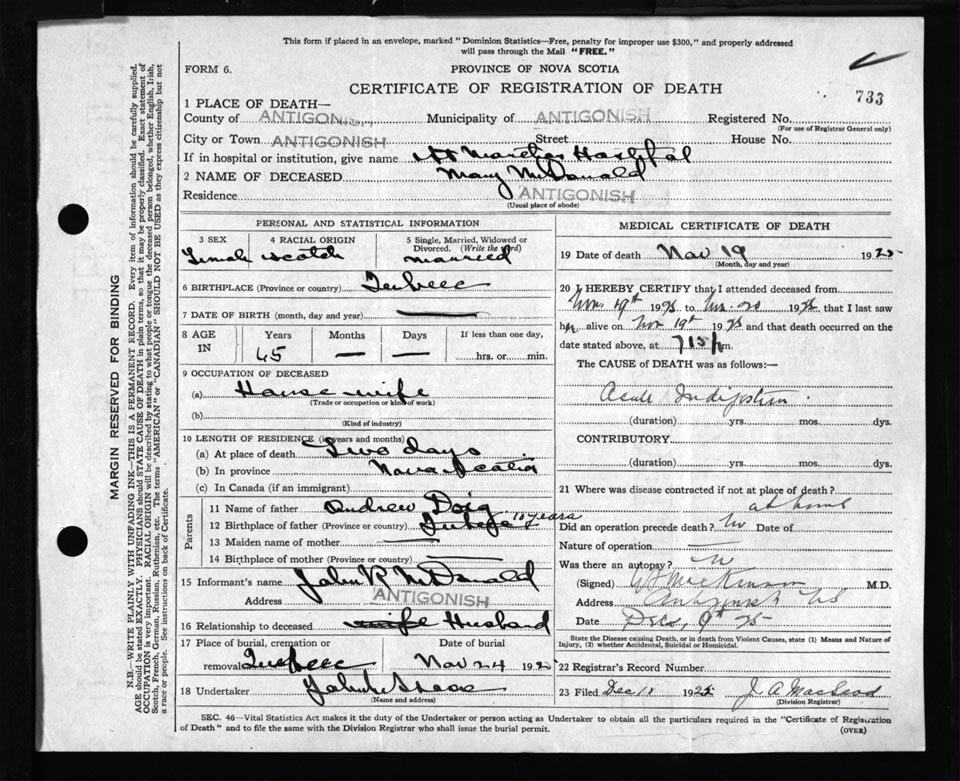 This form if placed in an envelope, marked "Dominion Statistics—Free, penalty for improper use $300," and properly addressed
will pass through the Mail "FREE."
FORM 6.
PROVINCE OF NOVA SCOTIA
CERTIFICATE OF REGISTRATION OF DEATH
733
1 PLACE OF DEATH—
County of ANTIGONISH Municipality of ANTIGONISH Registered No.
(For use of Registrar General only)
City or Town ANTIGONISH Street House No.
If in hospital or institution, give name St Marthas Hospital
2 NAME OF DECEASED Mary McDonald
Residence ANTIGONISH
(Usual place of abode)
PERSONAL AND STATISTICAL INFORMATION
3 SEX 4 RACIAL ORIGIN 5 Single, Married, Widowed or
Divorced. (Write the word)
Female Scotch Married
6 BIRTHPLACE (Province or country) Quebec
7 DATE OF BIRTH (month, day and year) —
8 AGE IN Years Months Days If less than one day,
45 — — hrs. or min.
9 OCCUPATION OF DECEASED
(a) House wife
(Trade or occupation or kind of work)
(b)
(Kind of industry)
10 LENGTH OF RESIDENCE (in years and months)
(a) At place of death Two days
(b) In province Nova Scotia
(c) In Canada (if an immigrant) 10 years
Parents
11 Name of father Andrew Doig
12 Birthplace of father (Province or country)
13 Maiden name of mother —
14 Birthplace of mother (Province or country) —
15 Informant's name John R McDonald
Address ANTIGONISH
16 Relationship to deceased wife Husband
17 Place of burial, cremation or Date of burial
removal Quebec Nov 24 1925
18 Undertaker John
(Name and address)
MEDICAL CERTIFICATE OF DEATH
19 Date of death Nov 19 1925
(Month, day and year)
20 I HEREBY CERTIFY that I attended deceased from
Nov 19th 1925 to Nov 20 1925, that I last saw
her alive on Nov 19th 1925 and that death occurred on the
date stated above, at 715 p m.
The CAUSE of DEATH was as follows:—
Acute Indigestion
(duration) yrs. mos. dys.
CONTRIBUTORY.
(duration) yrs. mos. dys.
21 Where was disease contracted if not at place of death?
at home
Did an operation precede death? No Date of
Nature of operation —
Was there an autopsy? No
(Signed) MacKinnon M.D.
Address Antigonish NS
Date Dec. 9th 25
State the Disease causing Death, or in death from Violent Causes, state (1) Means and Nature of
Injury, (2) whether Accidental, Suicidal or Homicidal.
22 Registrar's Record Number
23 Filed Dec 1925 J. A. MacLeod
(Division Registrar)
SEC. 46—Vital Statistics Act makes it the duty of the Undertaker or person acting as Undertaker to obtain all the particulars required in the "Certificate of Registration
of Death" and to file the same with the Division Registrar who shall issue the burial permit.
(OVER)
MARGIN RESERVED FOR BINDING
N.B.—WRITE PLAINLY WITH UNFADING INK—THIS IS A PERMANENT RECORD. Every item of information should be carefully supplied.
AGE should be stated EXACTLY. PHYSICIANS should STATE CAUSE OF DEATH in plain terms, so that it may be properly classified. Exact statement of
OCCUPATION is very important. RACIAL ORIGIN will be described by stating to what people or tongue the deceased person belonged, whether English, Irish,
Scotch, French, German, Russian, Ruthenian, etc. The terms "AMERICAN" or "CANADIAN" SHOULD NOT BE USED as they express citizenship but not
a race or people. See instructions on back of Certificate.